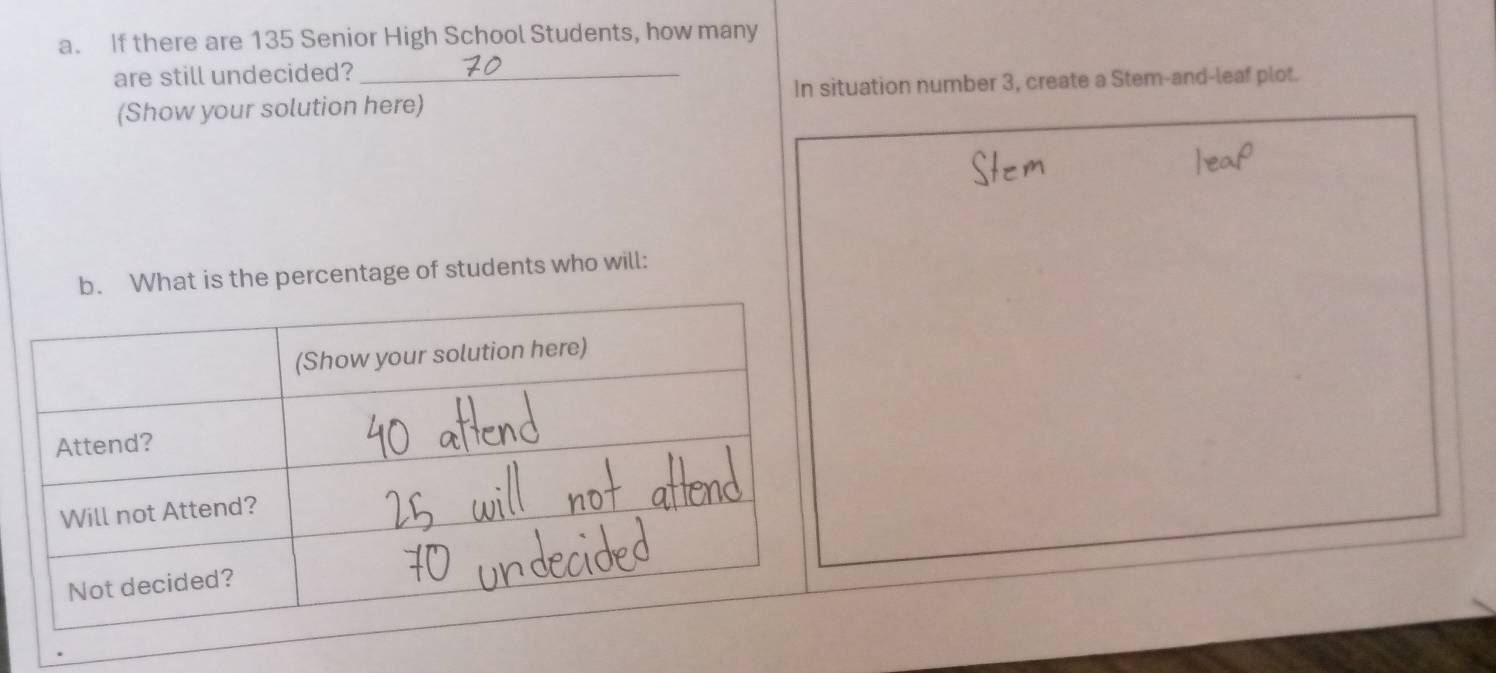 a. If there are 135 Senior High School Students, how many
are still undecided? 70
(Show your solution here)
b. What is the percentage of students who will:
(Show your solution here)
Attend? 40 attend
Will not Attend? 25 will not attend
Not decided? 70 undecided
In situation number 3, create a Stem-and-leaf plot.
Stem leaf